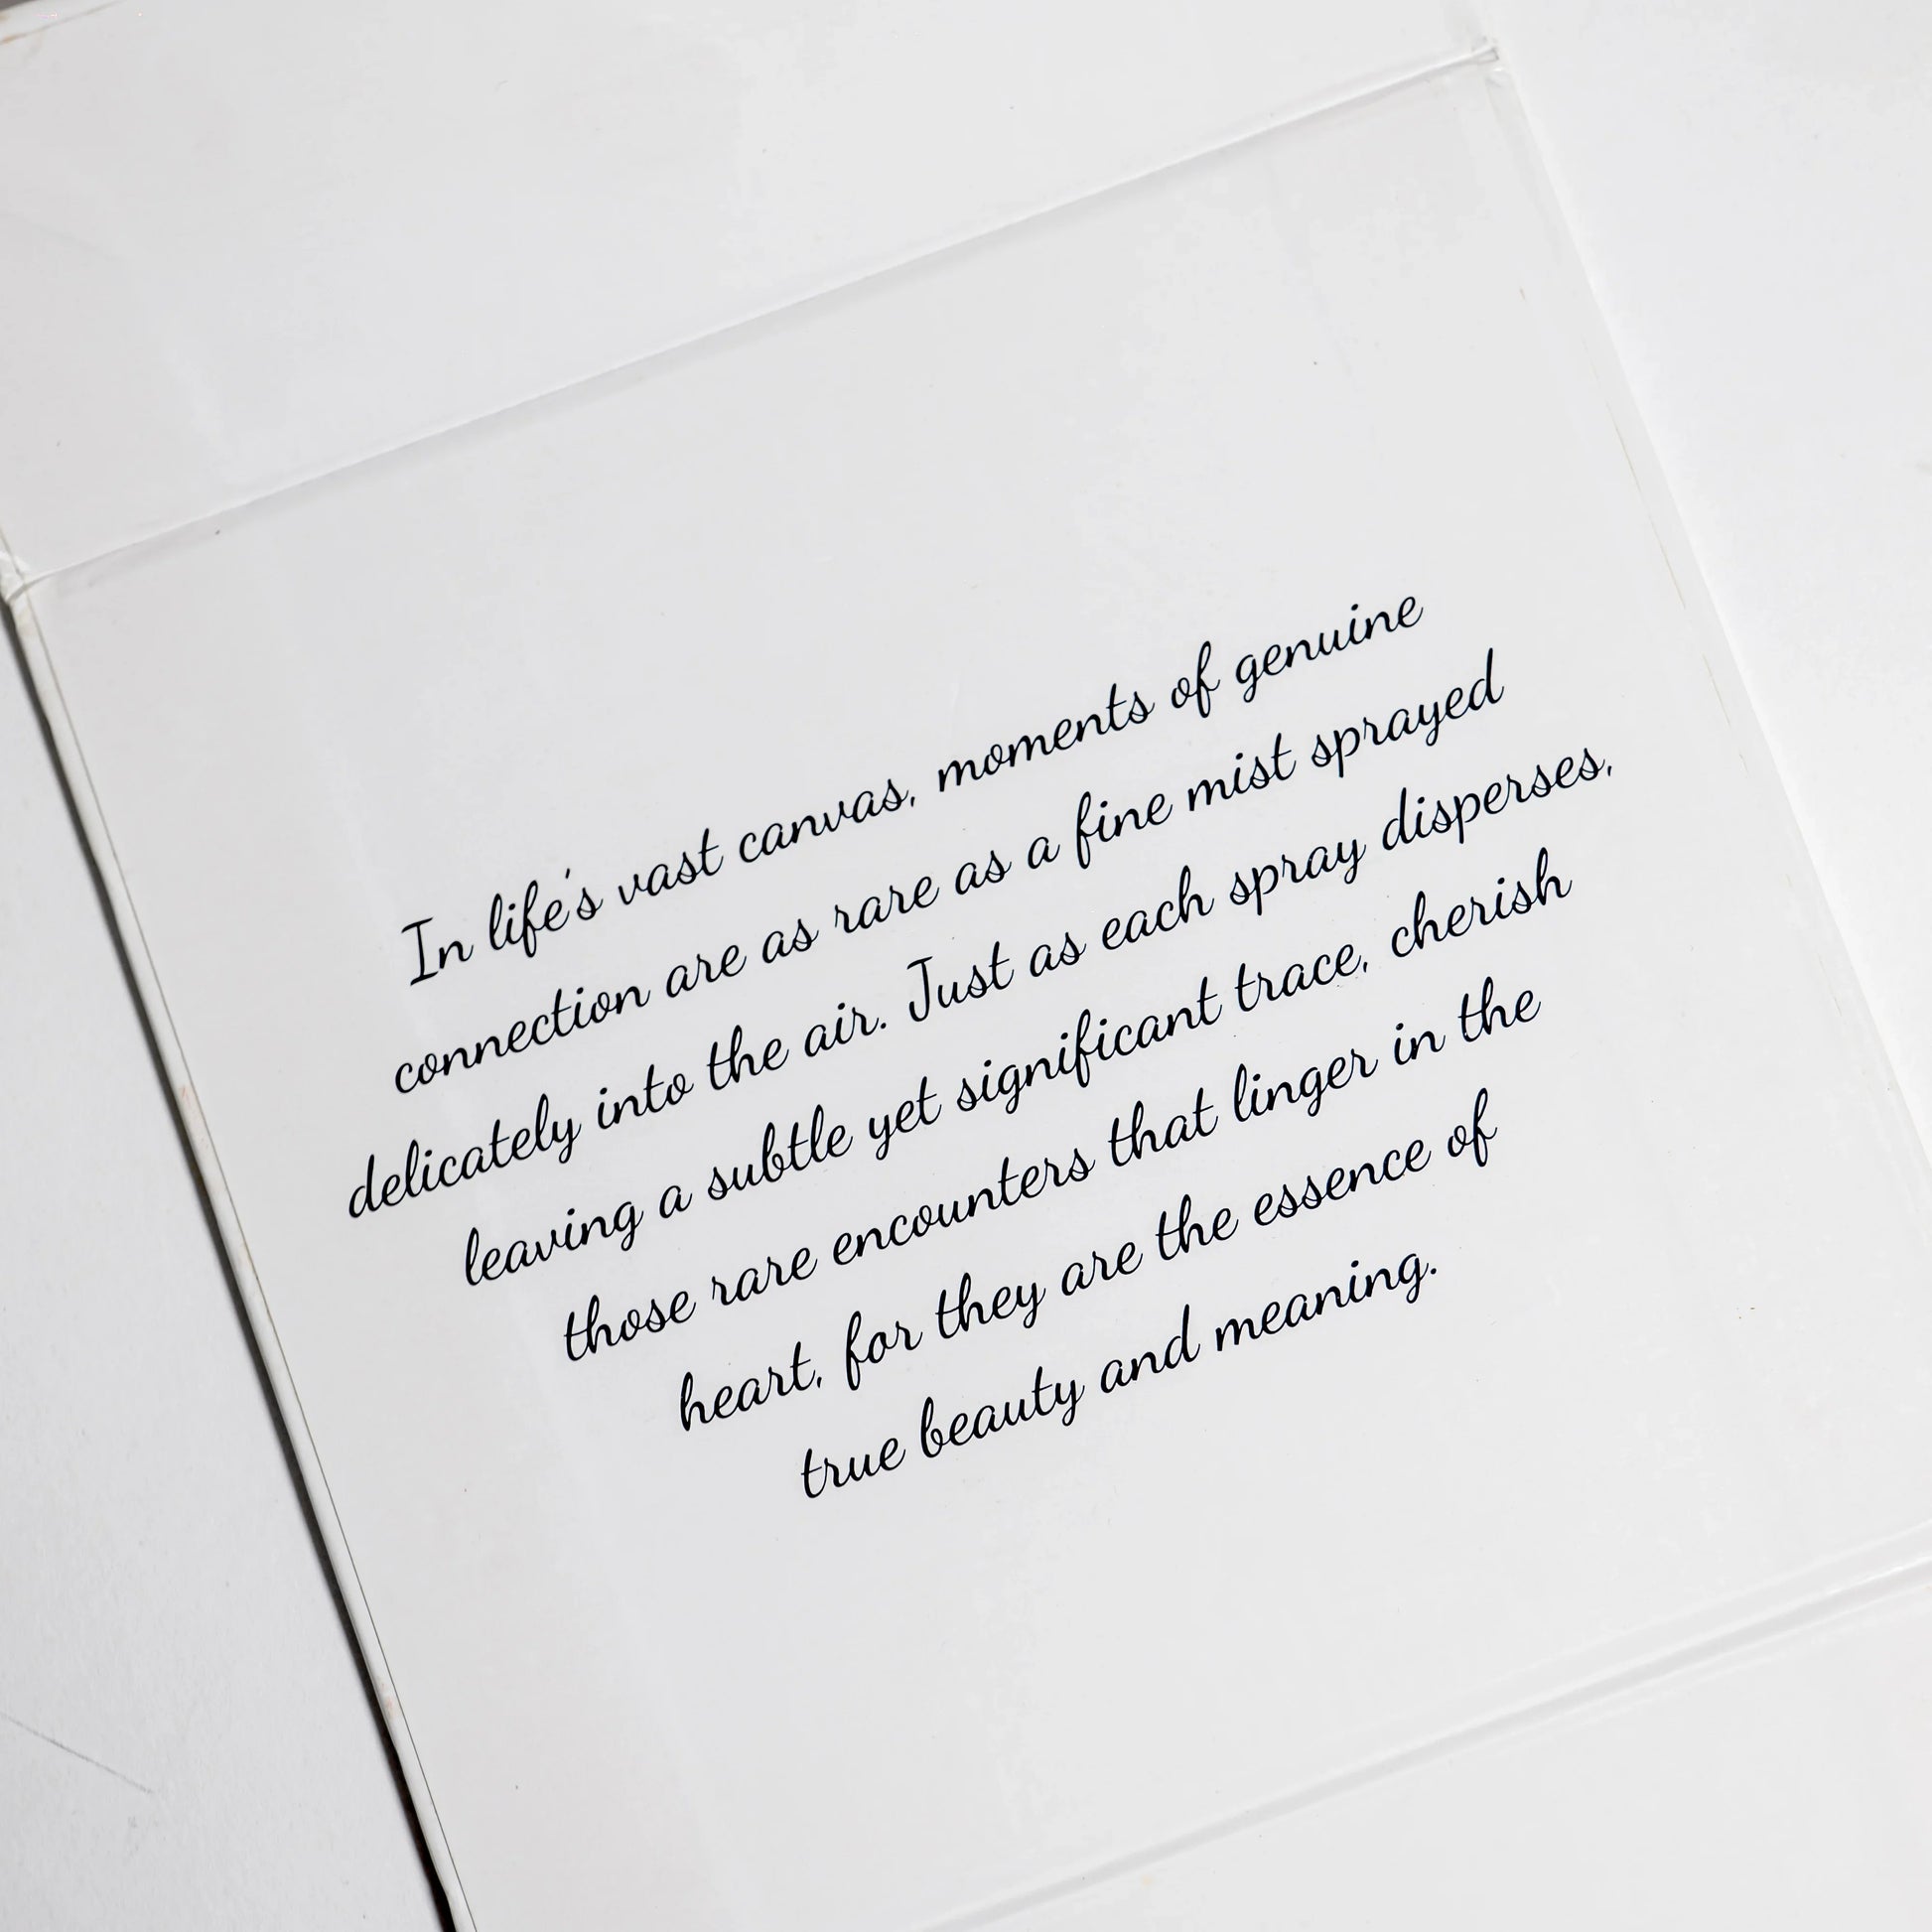 In life's vast canvas, moments of genuine
connection are as rare as a fine mist sprayed
delicately into the air. Just as each spray disperses,
leaving a subtle yet significant trace, cherish
those rare encounters that linger in the
heart, for they are the essence of
true beauty and meaning.